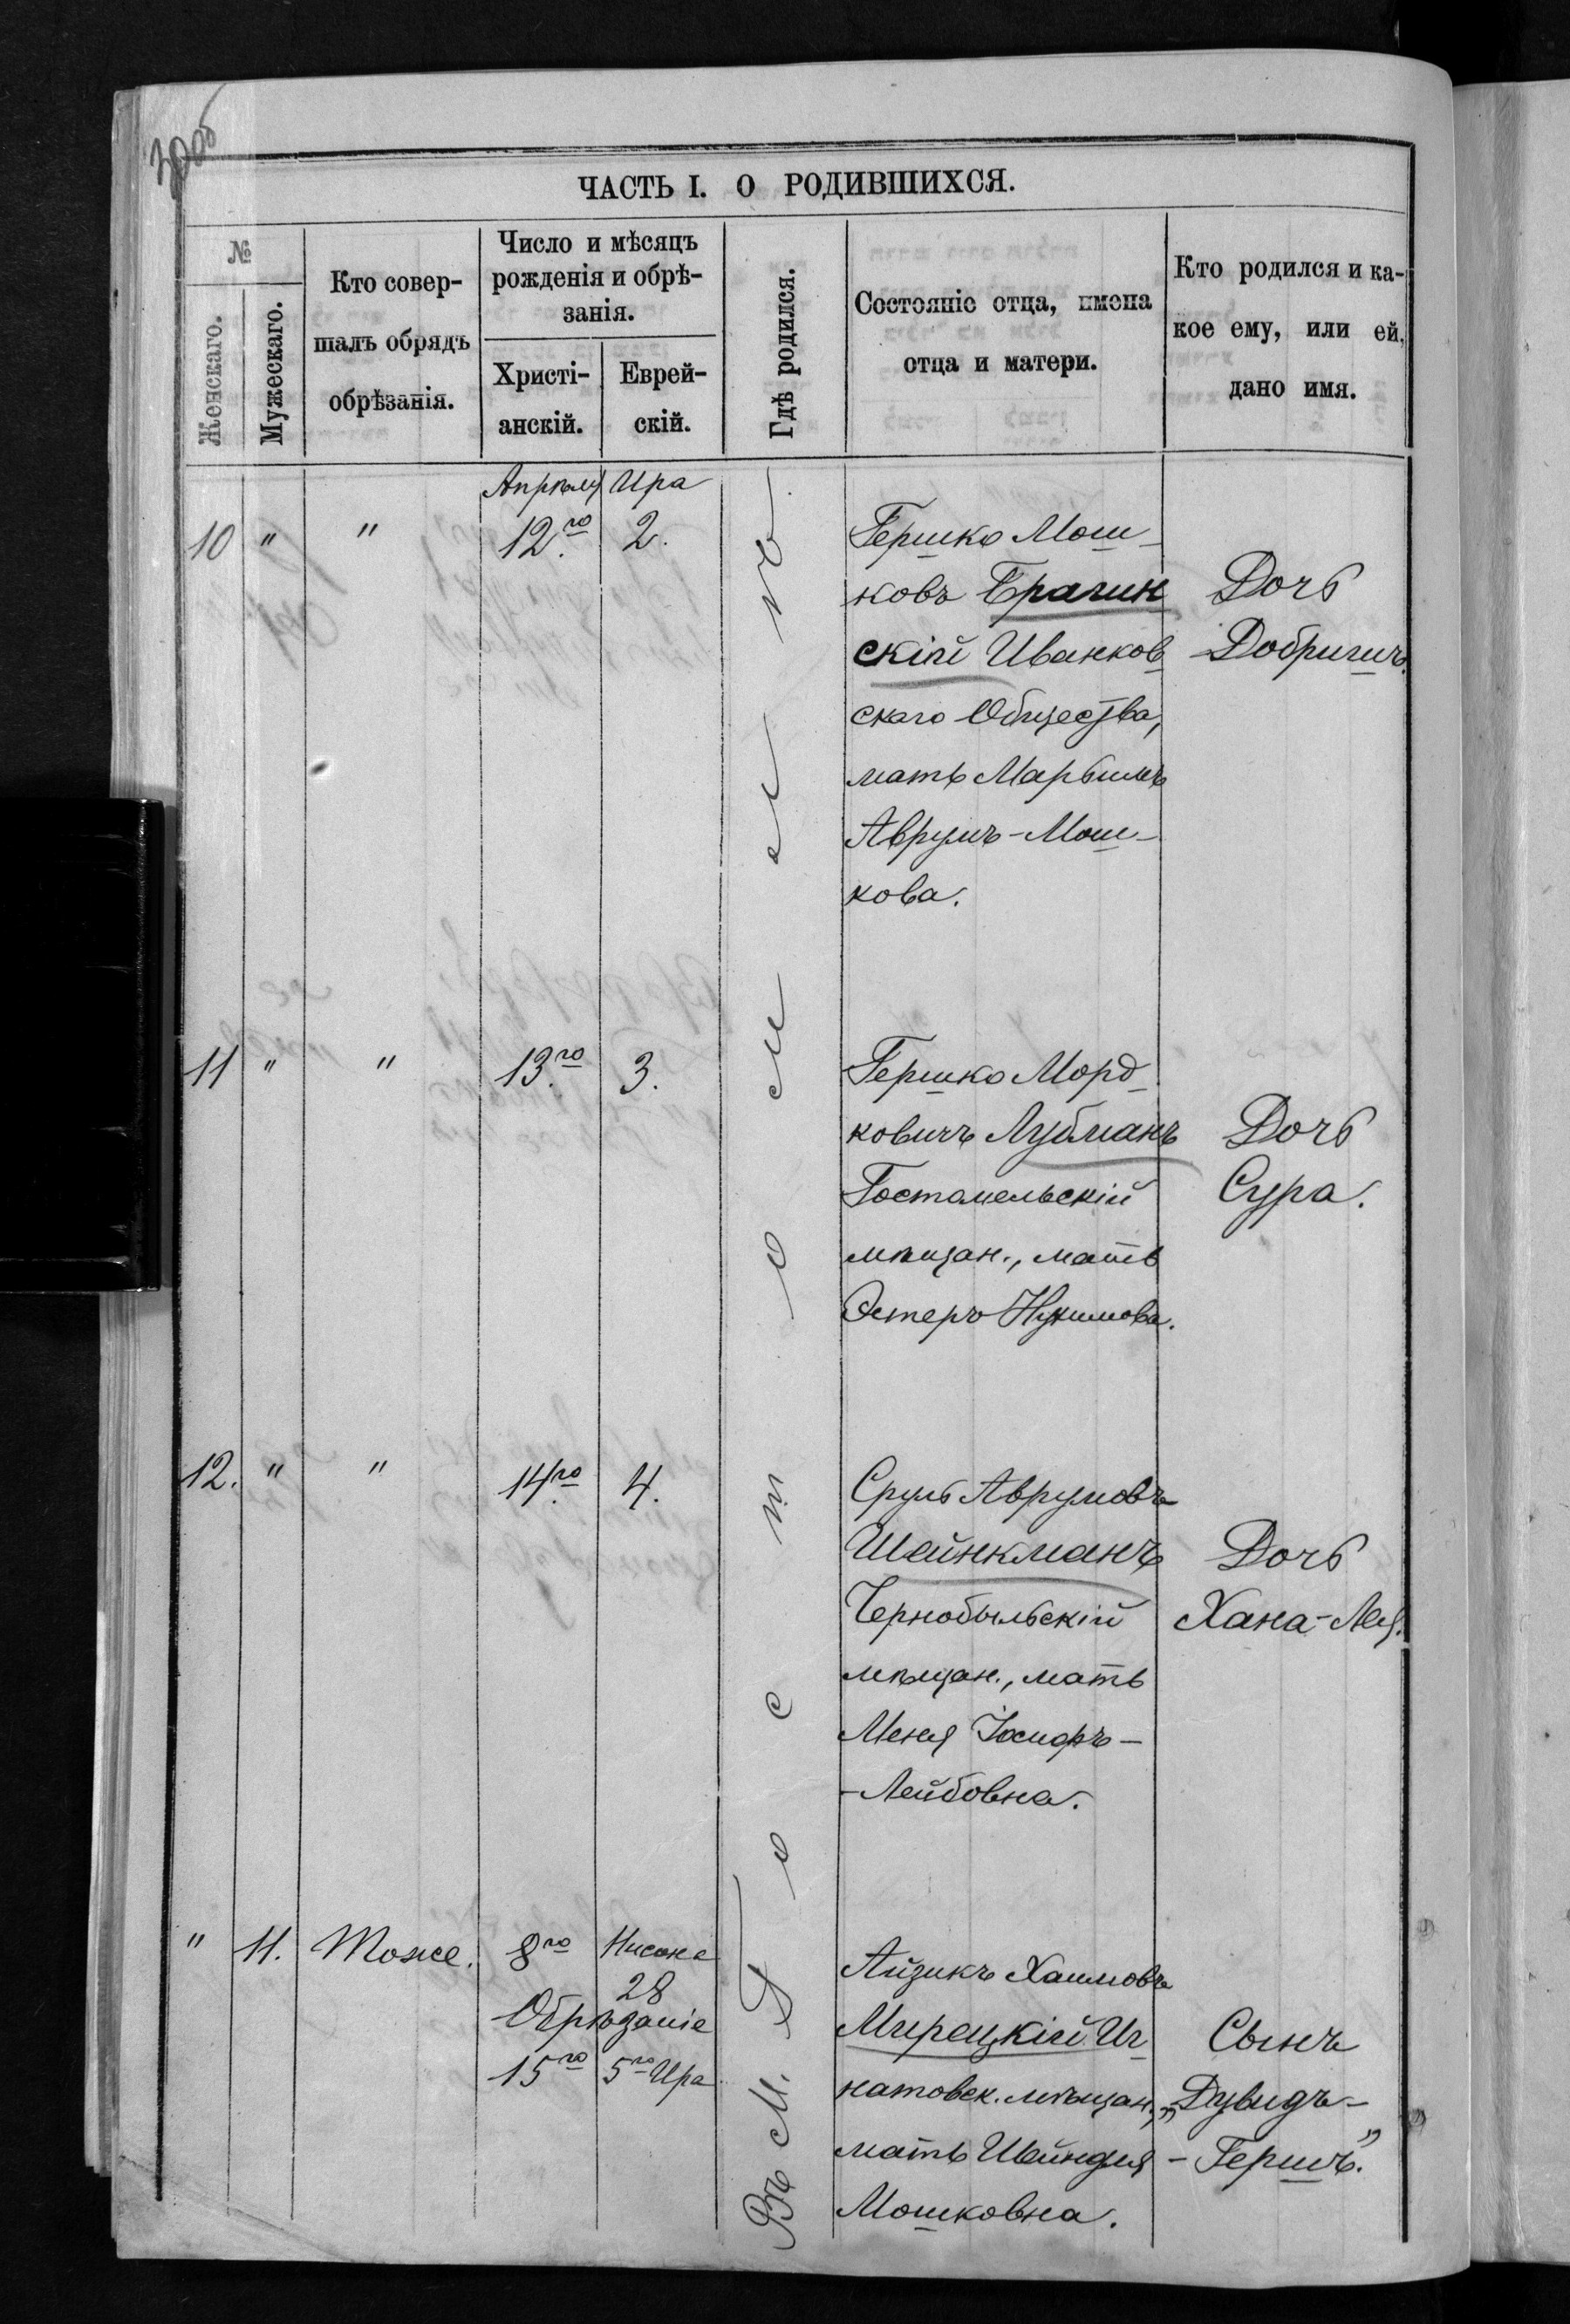 ЧАСТЬ I. О РОДИВШИХСЯ.
№
Женскаго.
Мужескаго.
Кто совер-
шалъ обрядъ
обрѣзанія.
Число и мѣсяцъ
рожденія и обрѣ-
занія.
Христі-
анскій.
Еврей-
скій.
Гдѣ родился.
Состояніе отца, имена
отца и матери.
Кто родился и ка-
кое ему, или ей,
дано имя.
Въ М. Гостомелѣ.
Апрѣля Ира
10 " " 12.го 2.
Гершко Мош-
ковъ Брагин
скій Иванков
скаго Общества,
мать Марьимъ
Аврумъ-Мош-
кова.
Дочь
Добришъ.
11 " " 13.го 3.
Гершко Морд-
ковичъ Лубманъ
Гостомельскій
мѣщан., мать
Эстеръ Нухимова.
Дочь
Сура.
12. " " 14.го 4.
Сруль Аврумовъ
Шайнкманъ
Чернобыльскій
мѣщан., мать
Меня Іосифъ-
-Лейбовна.
Дочь
Хана-Лея.
" 11. Тоже. 8го Нисона
28
Обрѣзаніе
15го 5го Ира
Айзикъ Хаимовъ
Мирецкій Иг
натовск. мѣщан.,
мать Шейндля
Мошковна.
Сынъ
„Дувидъ-
-Гершъ”.